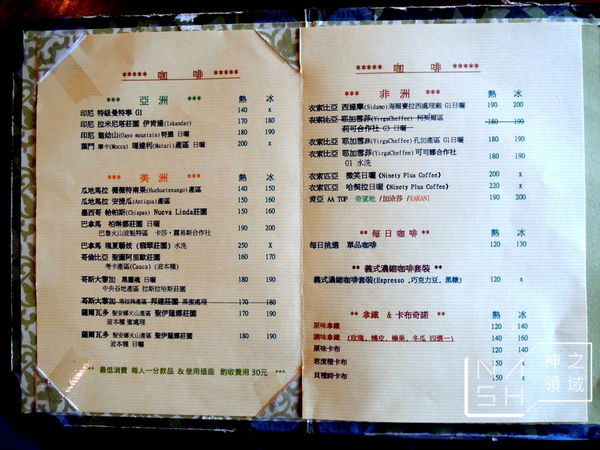 ***** 咖 啡 *****
*** 亞 洲 *** 熱 冰
印尼 特級曼特寧 G1 140 x
印尼 拉米尼塔莊園 伊肯達(Iskandar) 170 180
印尼 迦幼山(Gayo mountain)特選 日曬 180 190
葉門 摩卡(Mocca) 瑪達利(Matari)產區 日曬 200 x
*** 美 洲 *** 熱 冰
瓜地馬拉 薇薇特南果(Huehuetenango)產區 140 150
瓜地馬拉 安提瓜(Antigua)產區 150 160
墨西哥 帕帕斯(Chiapas) Nueva Linda莊園 150 160
巴拿馬 柏琳娜莊園 日曬 190 200
巴魯火山波魁特區 卡莎‧露易斯合作社
巴拿馬 瑰夏藝妓 (翡翠莊園) 水洗 250 x
哥倫比亞 聖圖阿里歐莊園 160 170
考卡產區(Cauca) (波本種)
哥斯大黎加 黑靈魂 日曬 180 190
中央谷地產區 拉斯拉哈斯莊園
哥斯大黎加 塔拉珠產區 邦達莊園 黑蜜處理 170 180
薩爾瓦多 聖安娜火山產區 聖伊蓮娜莊園 180 190
波本種 蜜處理
薩爾瓦多 聖安娜火山產區 聖伊蓮娜莊園 180 190
波本種 日曬
*** 最低消費 每人一分飲品 & 使用插座 酌收費用 30元 ***
***** 咖 啡 *****
*** 非 洲 *** 熱 冰
衣索比亞 西達摩(Sidamo)海爾賽拉西處理廠 G1日曬 190 200
衣索比亞 耶加雪菲(YirgaCheffee) 柯契爾區 180 190
莉可合作社 G3 日曬
衣索比亞 耶加雪菲(YirgaCheffee)孔加產區 G1日曬 180 190
衣索比亞 耶加雪菲(YirgaCheffee)可可娜合作社 180 190
G1 水洗
衣索匹亞 微笑日曬 (Ninety Plus Coffee) 200 x
衣索匹亞 哈契拉日曬 (Ninety Plus Coffee) 220 x
肯亞 AA TOP 奇望地 /加洽莎 /KARANI 190 x
** 每 日 咖 啡 ** 熱 冰
每日挑選 單品咖啡 120 130
** 義式濃縮咖啡套裝 **
義式濃縮咖啡套裝(Espresso ,巧克力豆, 黑糖) 120 x
** 拿鐵 & 卡布奇諾 ** 熱 冰
原味拿鐵 120 140
調味拿鐵 (玫瑰, 橘皮, 榛果, 冬瓜 四選一) 140 160
原味卡布 120 140
君度橙卡布 150 x
貝禮詩卡布 150 x
NMSH
神之領域